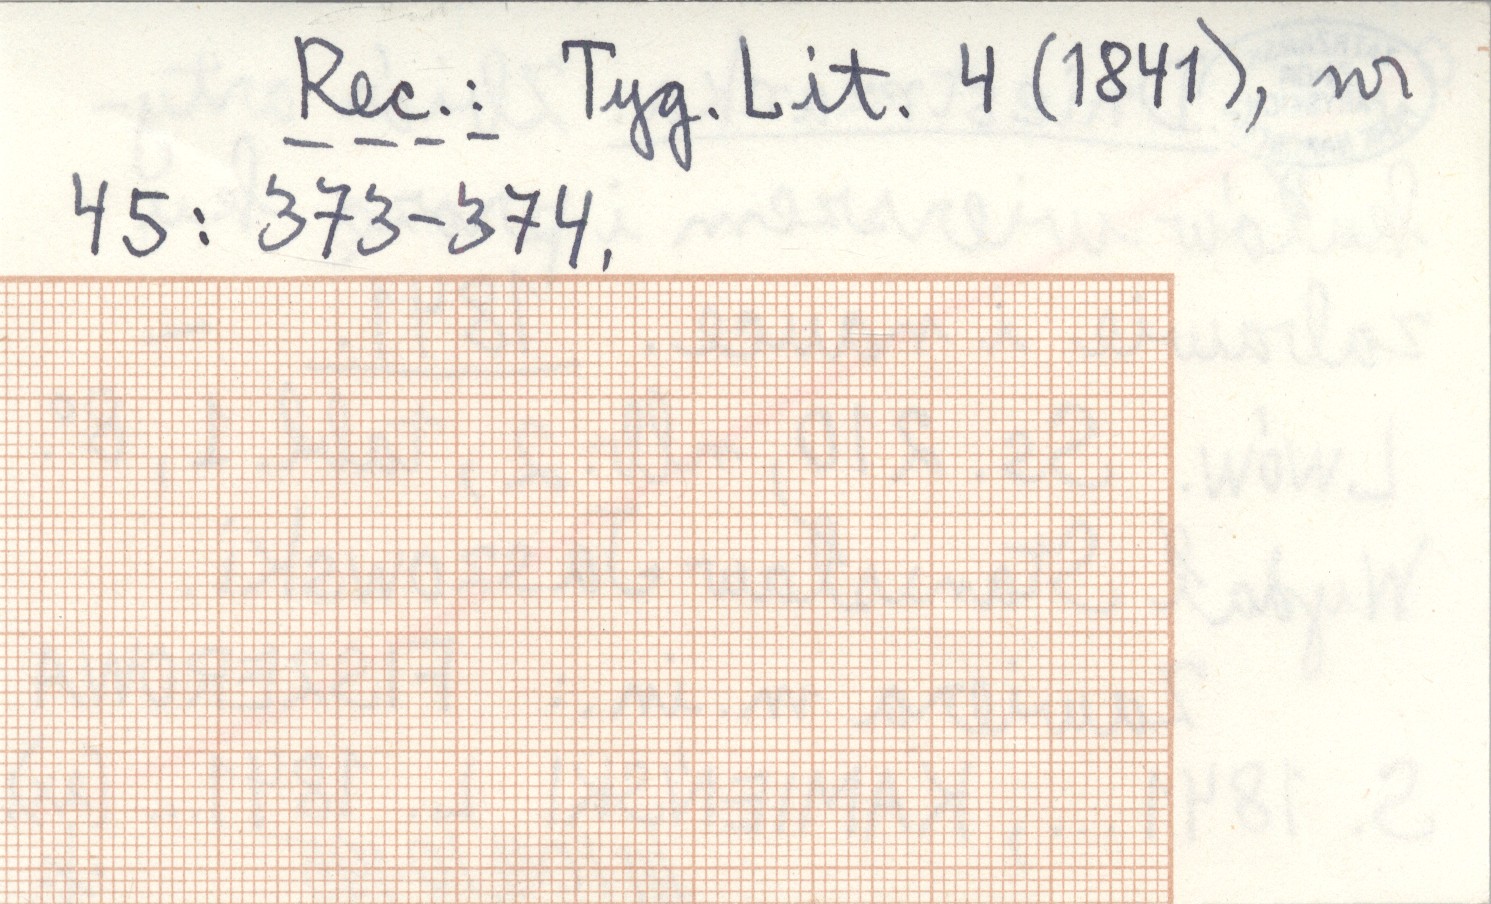 Rec.: Tyg. Lit. 4 (1841), nr
45: 373-374,